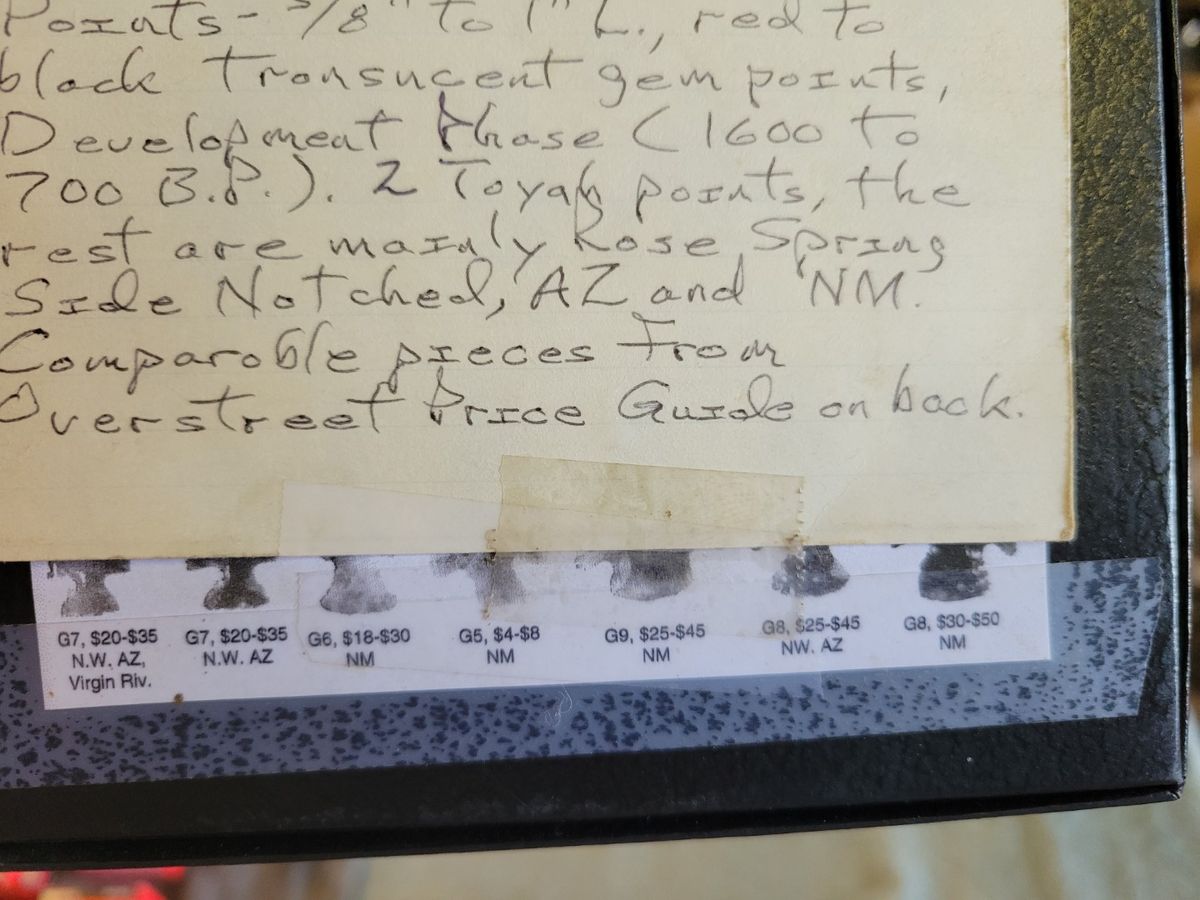 Points - 5/8" to 1" L., red to
black transucent gem points,
Development Phase (1600 to
700 B.P.). 2 Toyah points, the
rest are mainly Rose Spring
Side Notched, AZ and NM.
Comparable pieces from
Overstreet Price Guide on back.
G7, $20-$35 G7, $20-$35 G6, $18-$30 G5, $4-$8 G9, $25-$45 G8, $25-$45 G8, $30-$50
N.W. AZ, N.W. AZ NM NM NM NW. AZ NM
Virgin Riv.